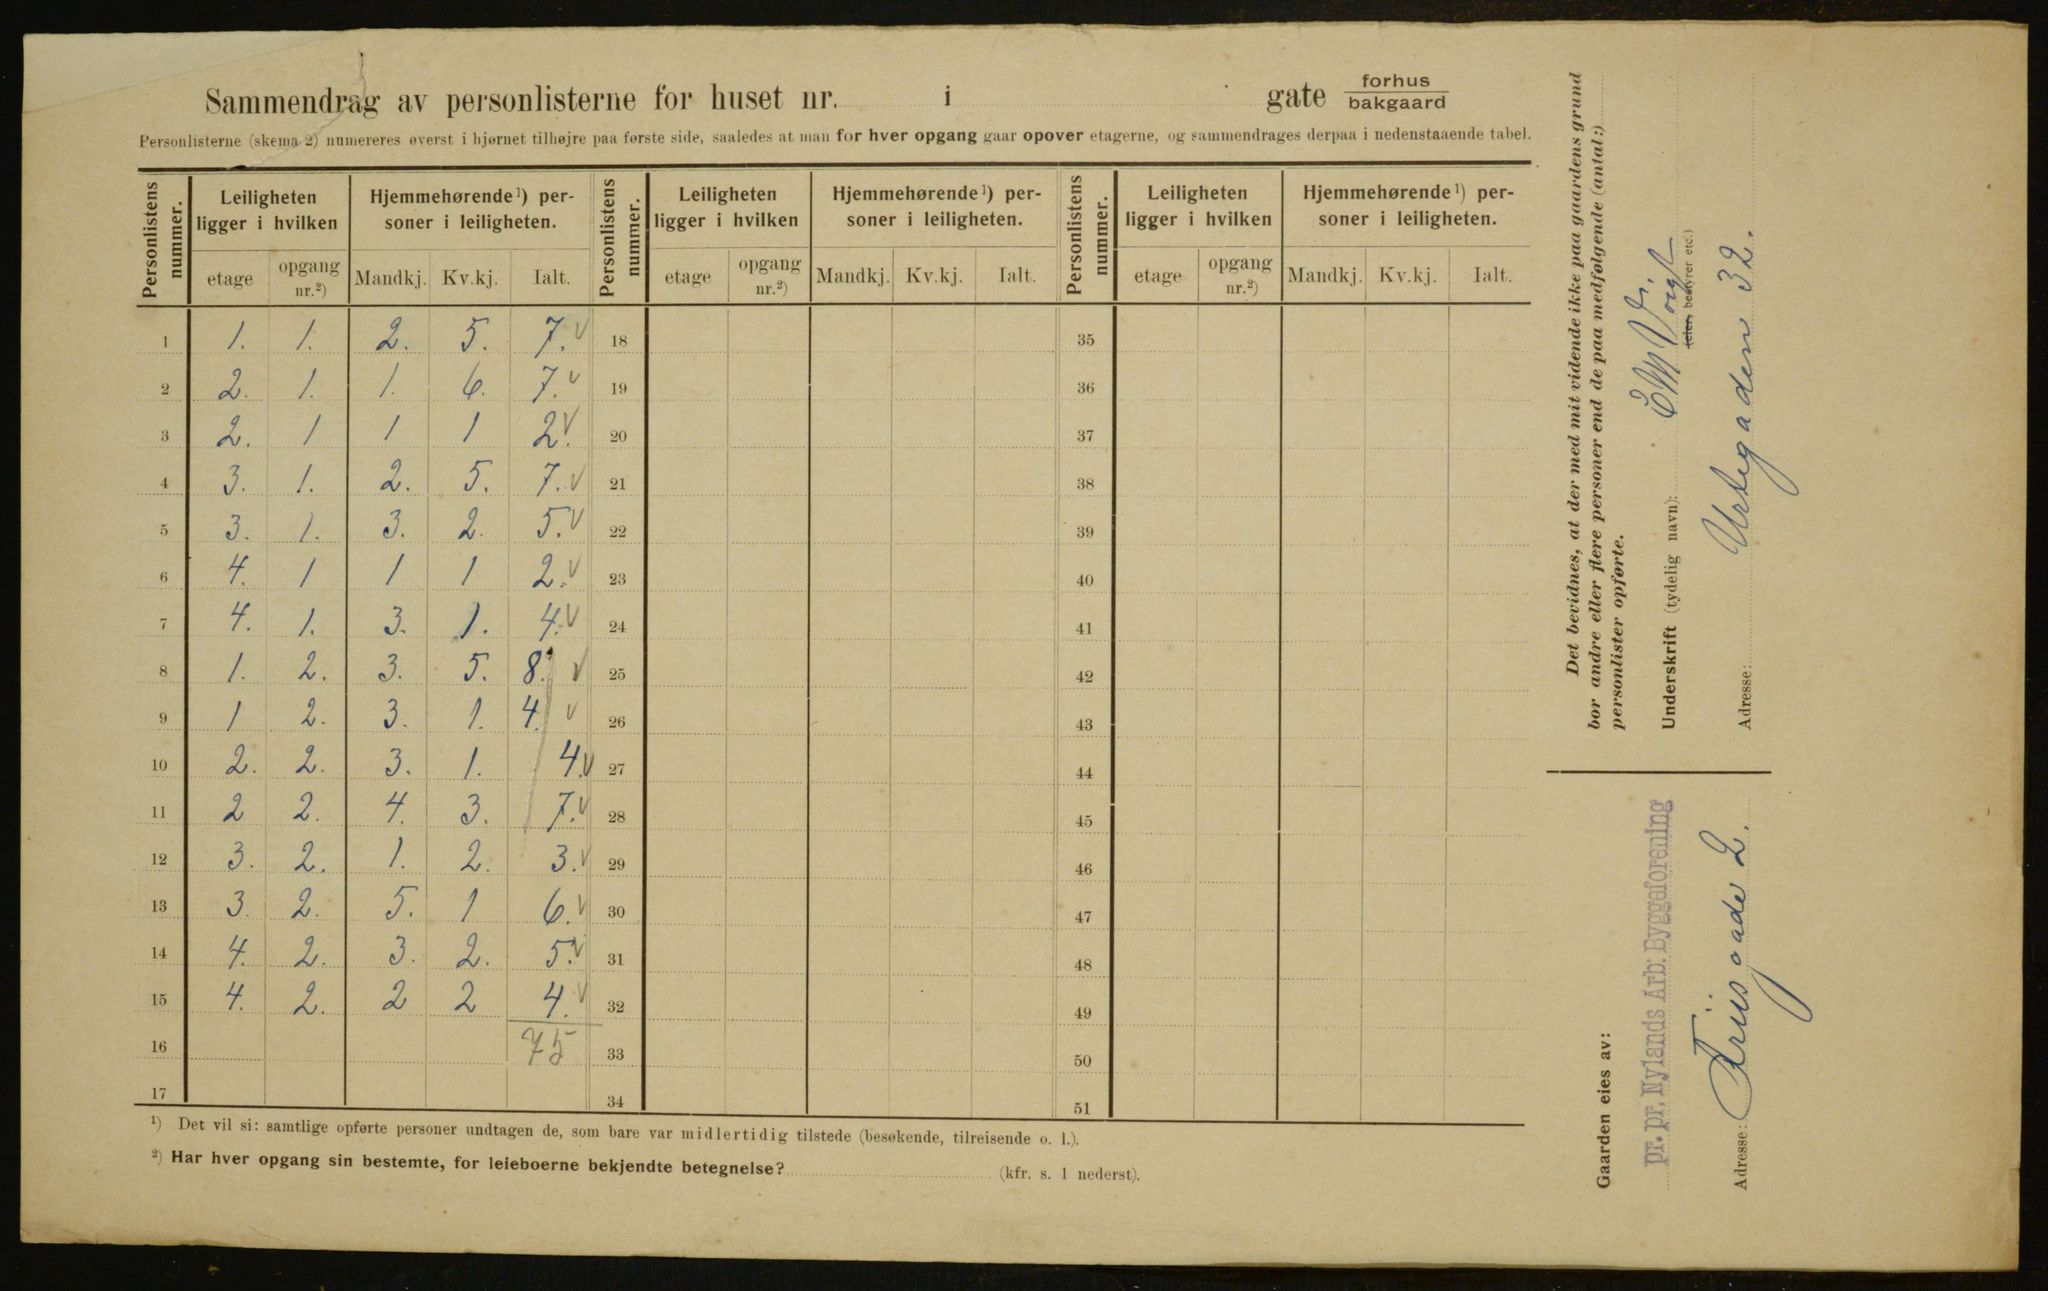 Sammendrag av personlisterne for huset nr. i gate forhus
bakgaard
Personlisterne (skema 2) numereres øverst i hjørnet tilhøjre paa første side, saaledes at man for hver opgang gaar opover etagerne, og sammendrages derpaa i nedenstaaende tabel.
Personlistens nummer. Leiligheten ligger i hvilken Hjemmehørende ¹) personer i leiligheten. Personlistens nummer. Leiligheten ligger i hvilken Hjemmehørende ¹) personer i leiligheten. Personlistens nummer. Leiligheten ligger i hvilken Hjemmehørende ¹) personer i leiligheten.
etage opgang nr.²) Mandkj. Kv.kj. Ialt. etage opgang nr.²) Mandkj. Kv.kj. Ialt. etage opgang nr.²) Mandkj. Kv.kj. Ialt.
1 1. 1. 2. 5. 7. v 18 35
2 2. 1. 1. 6. 7. v 19 36
3 2. 1 1 1 2. v 20 37
4 3. 1. 2. 5. 7. v 21 38
5 3. 1. 3. 2. 5. v 22 39
6 4. 1 1 1 2. v 23 40
7 4. 1. 3. 1. 4. v 24 41
8 1. 2. 3. 5. 8. v 25 42
9 1 2. 3. 1. 4. v 26 43
10 2. 2. 3. 1. 4. v 27 44
11 2 2. 4. 3. 7. v 28 45
12 3. 2. 1. 2. 3. v 29 46
13 3. 2. 5. 1 6. v 30 47
14 4. 2. 3. 2. 5. v 31 48
15 4. 2. 2 2 4. v 32 49
16 75 33 50
17 34 51
¹) Det vil si: samtlige opførte personer undtagen de, som bare var midlertidig tilstede (besøkende, tilreisende o. l.).
²) Har hver opgang sin bestemte, for leieboerne bekjendte betegnelse? (kfr. s. 1 nederst).
Det bevidnes, at der med mit vidende ikke paa gaardens grund
bor andre eller flere personer end de paa medfølgende (antal:)
personlister opførte.
Underskrift (tydelig navn): E M Voigt
(eier, bestyrer etc.)
Adresse: Urtegaden 32.
Gaarden eies av:
pr. pr. Nylands Arb: Byggeforening
Adresse: Friisgade 2.